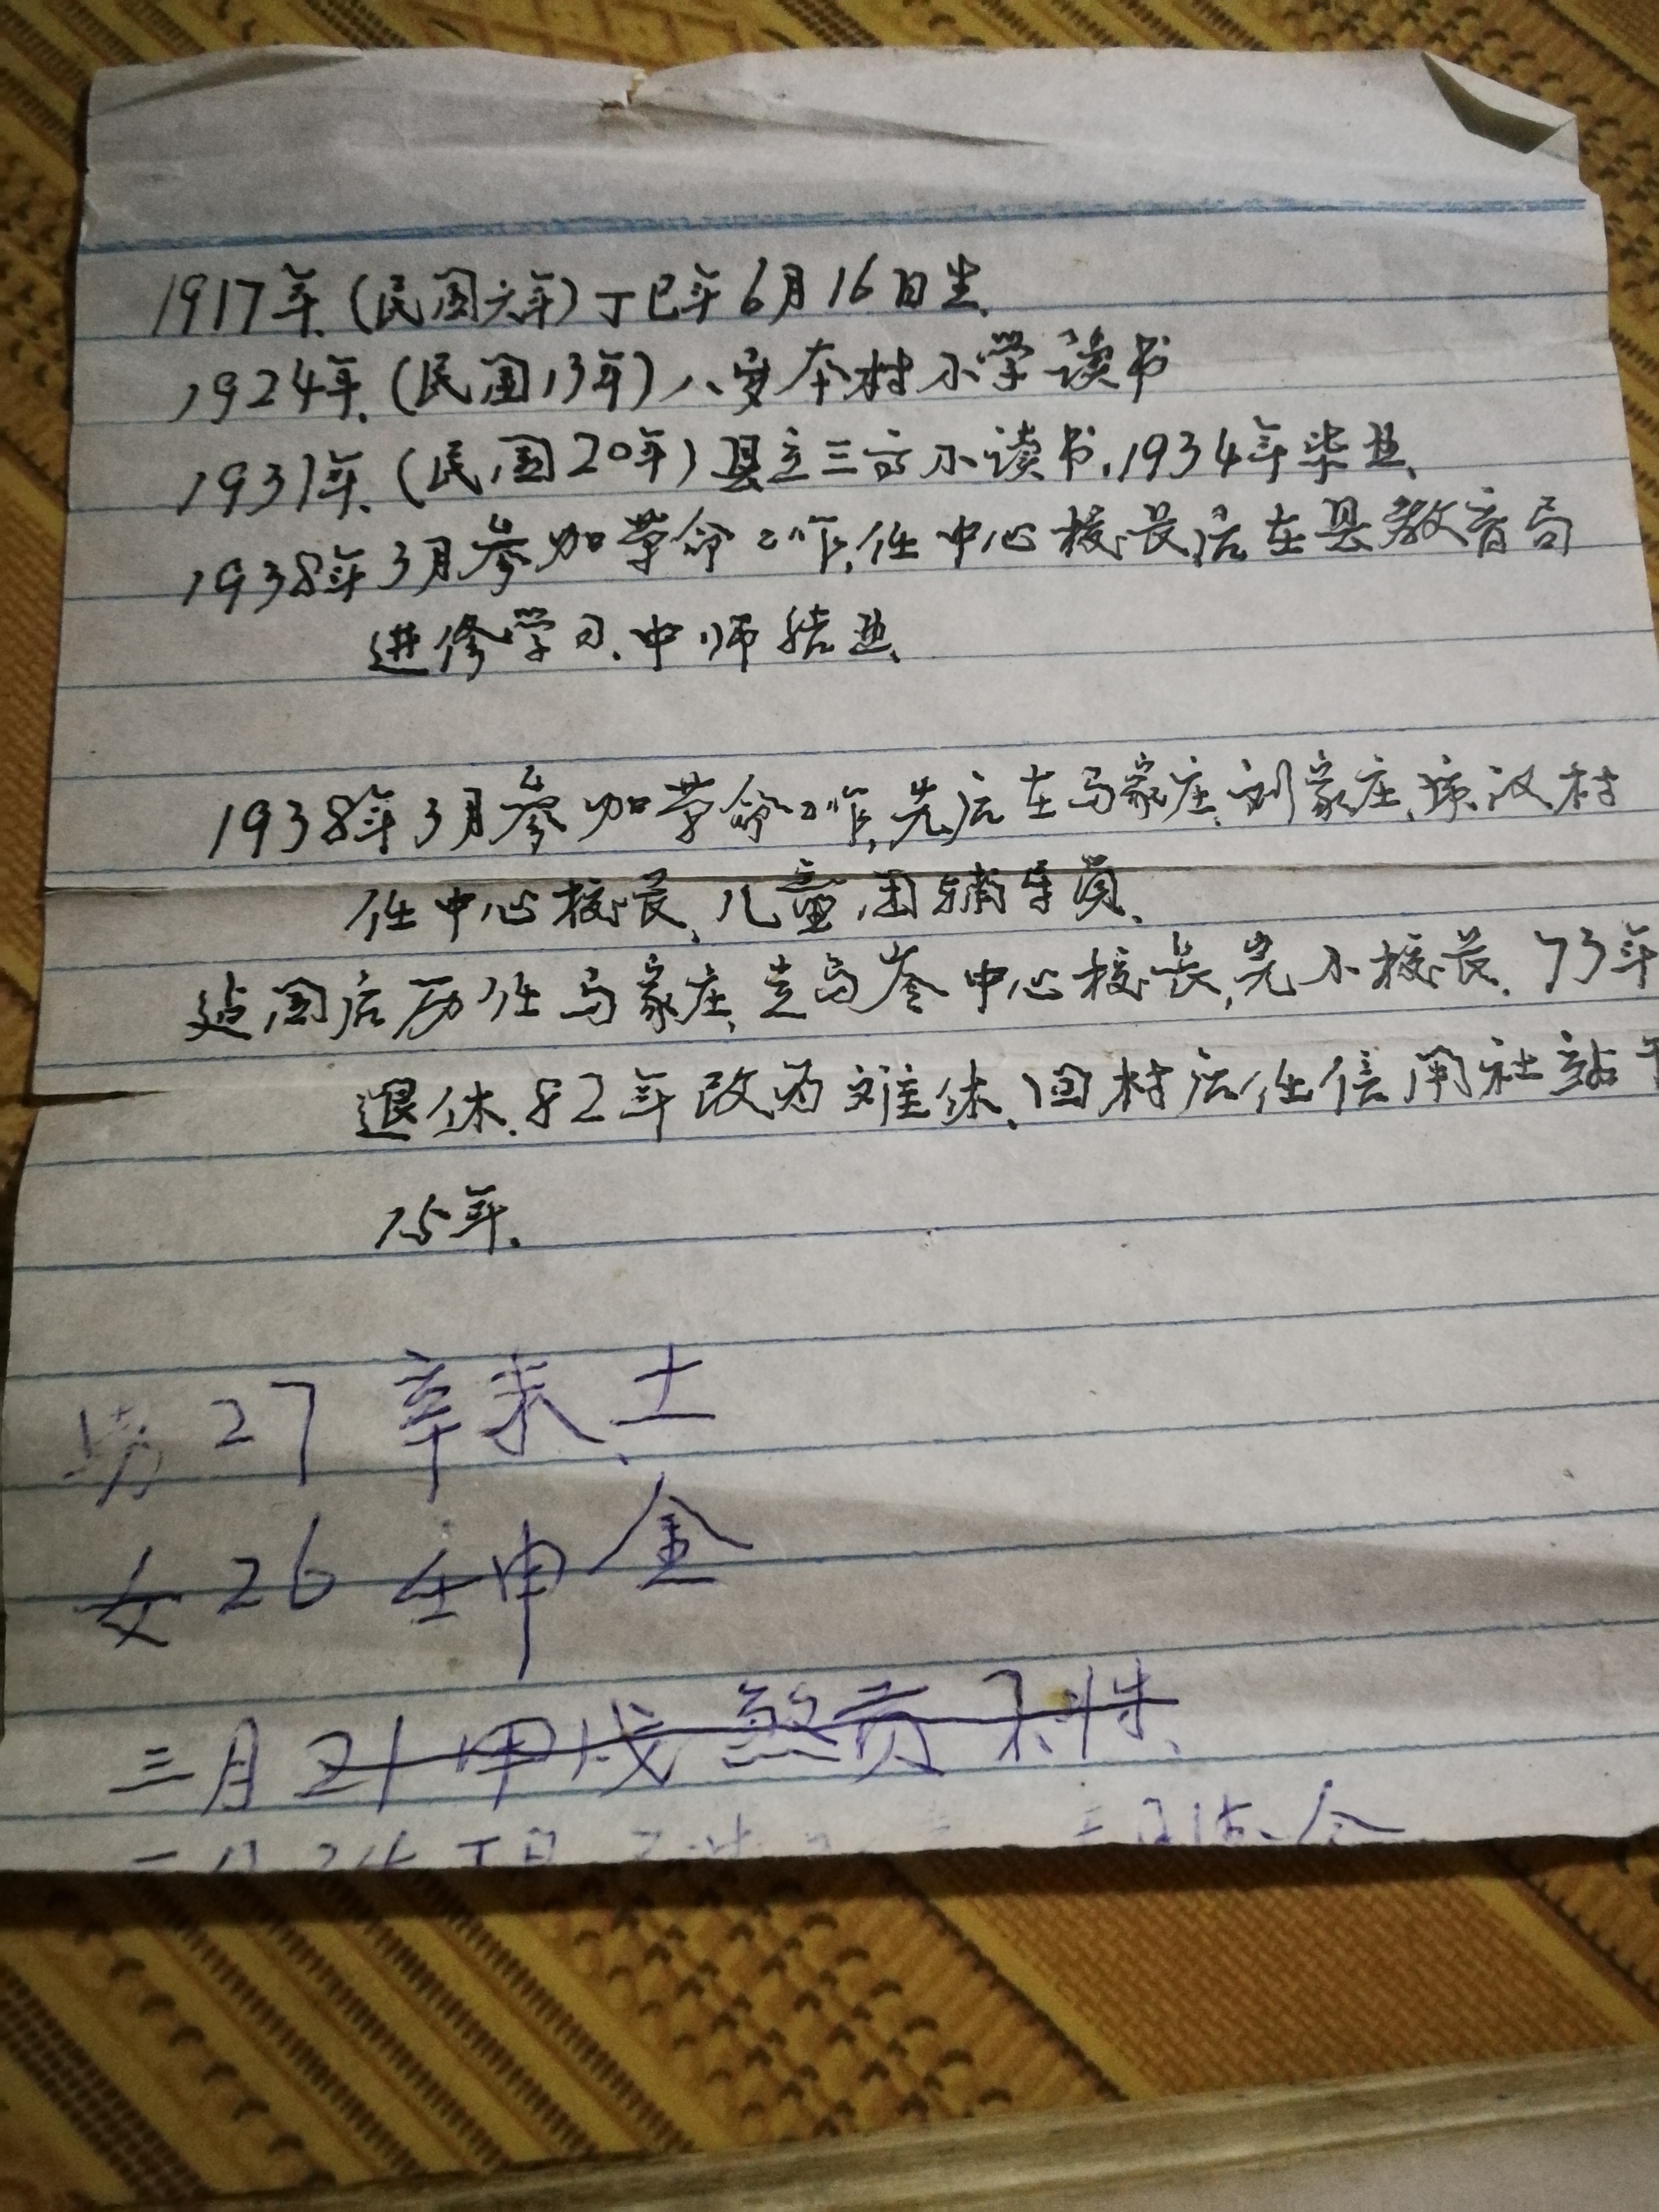 1917年.(民国六年)丁巳年6月16日生.
1924年.(民国13年)八岁本村小学读书
1931年.(民国20年)县立三高小读书,1934年毕业.
1938年3月参加革命工作,任中心校长后在县教育局
进修学习.中师结业.
1938年3月参加革命工作,先后在马家庄.刘家庄.汉村
任中心校长、儿童团辅导员.
建国后历任马家庄、中心校长,完小校长.73年
退休.82年改为离休.回村后任信用社站
15年.
男 27 辛未 土
女 26 壬申 金
三月21甲戌 煞贡 不将.